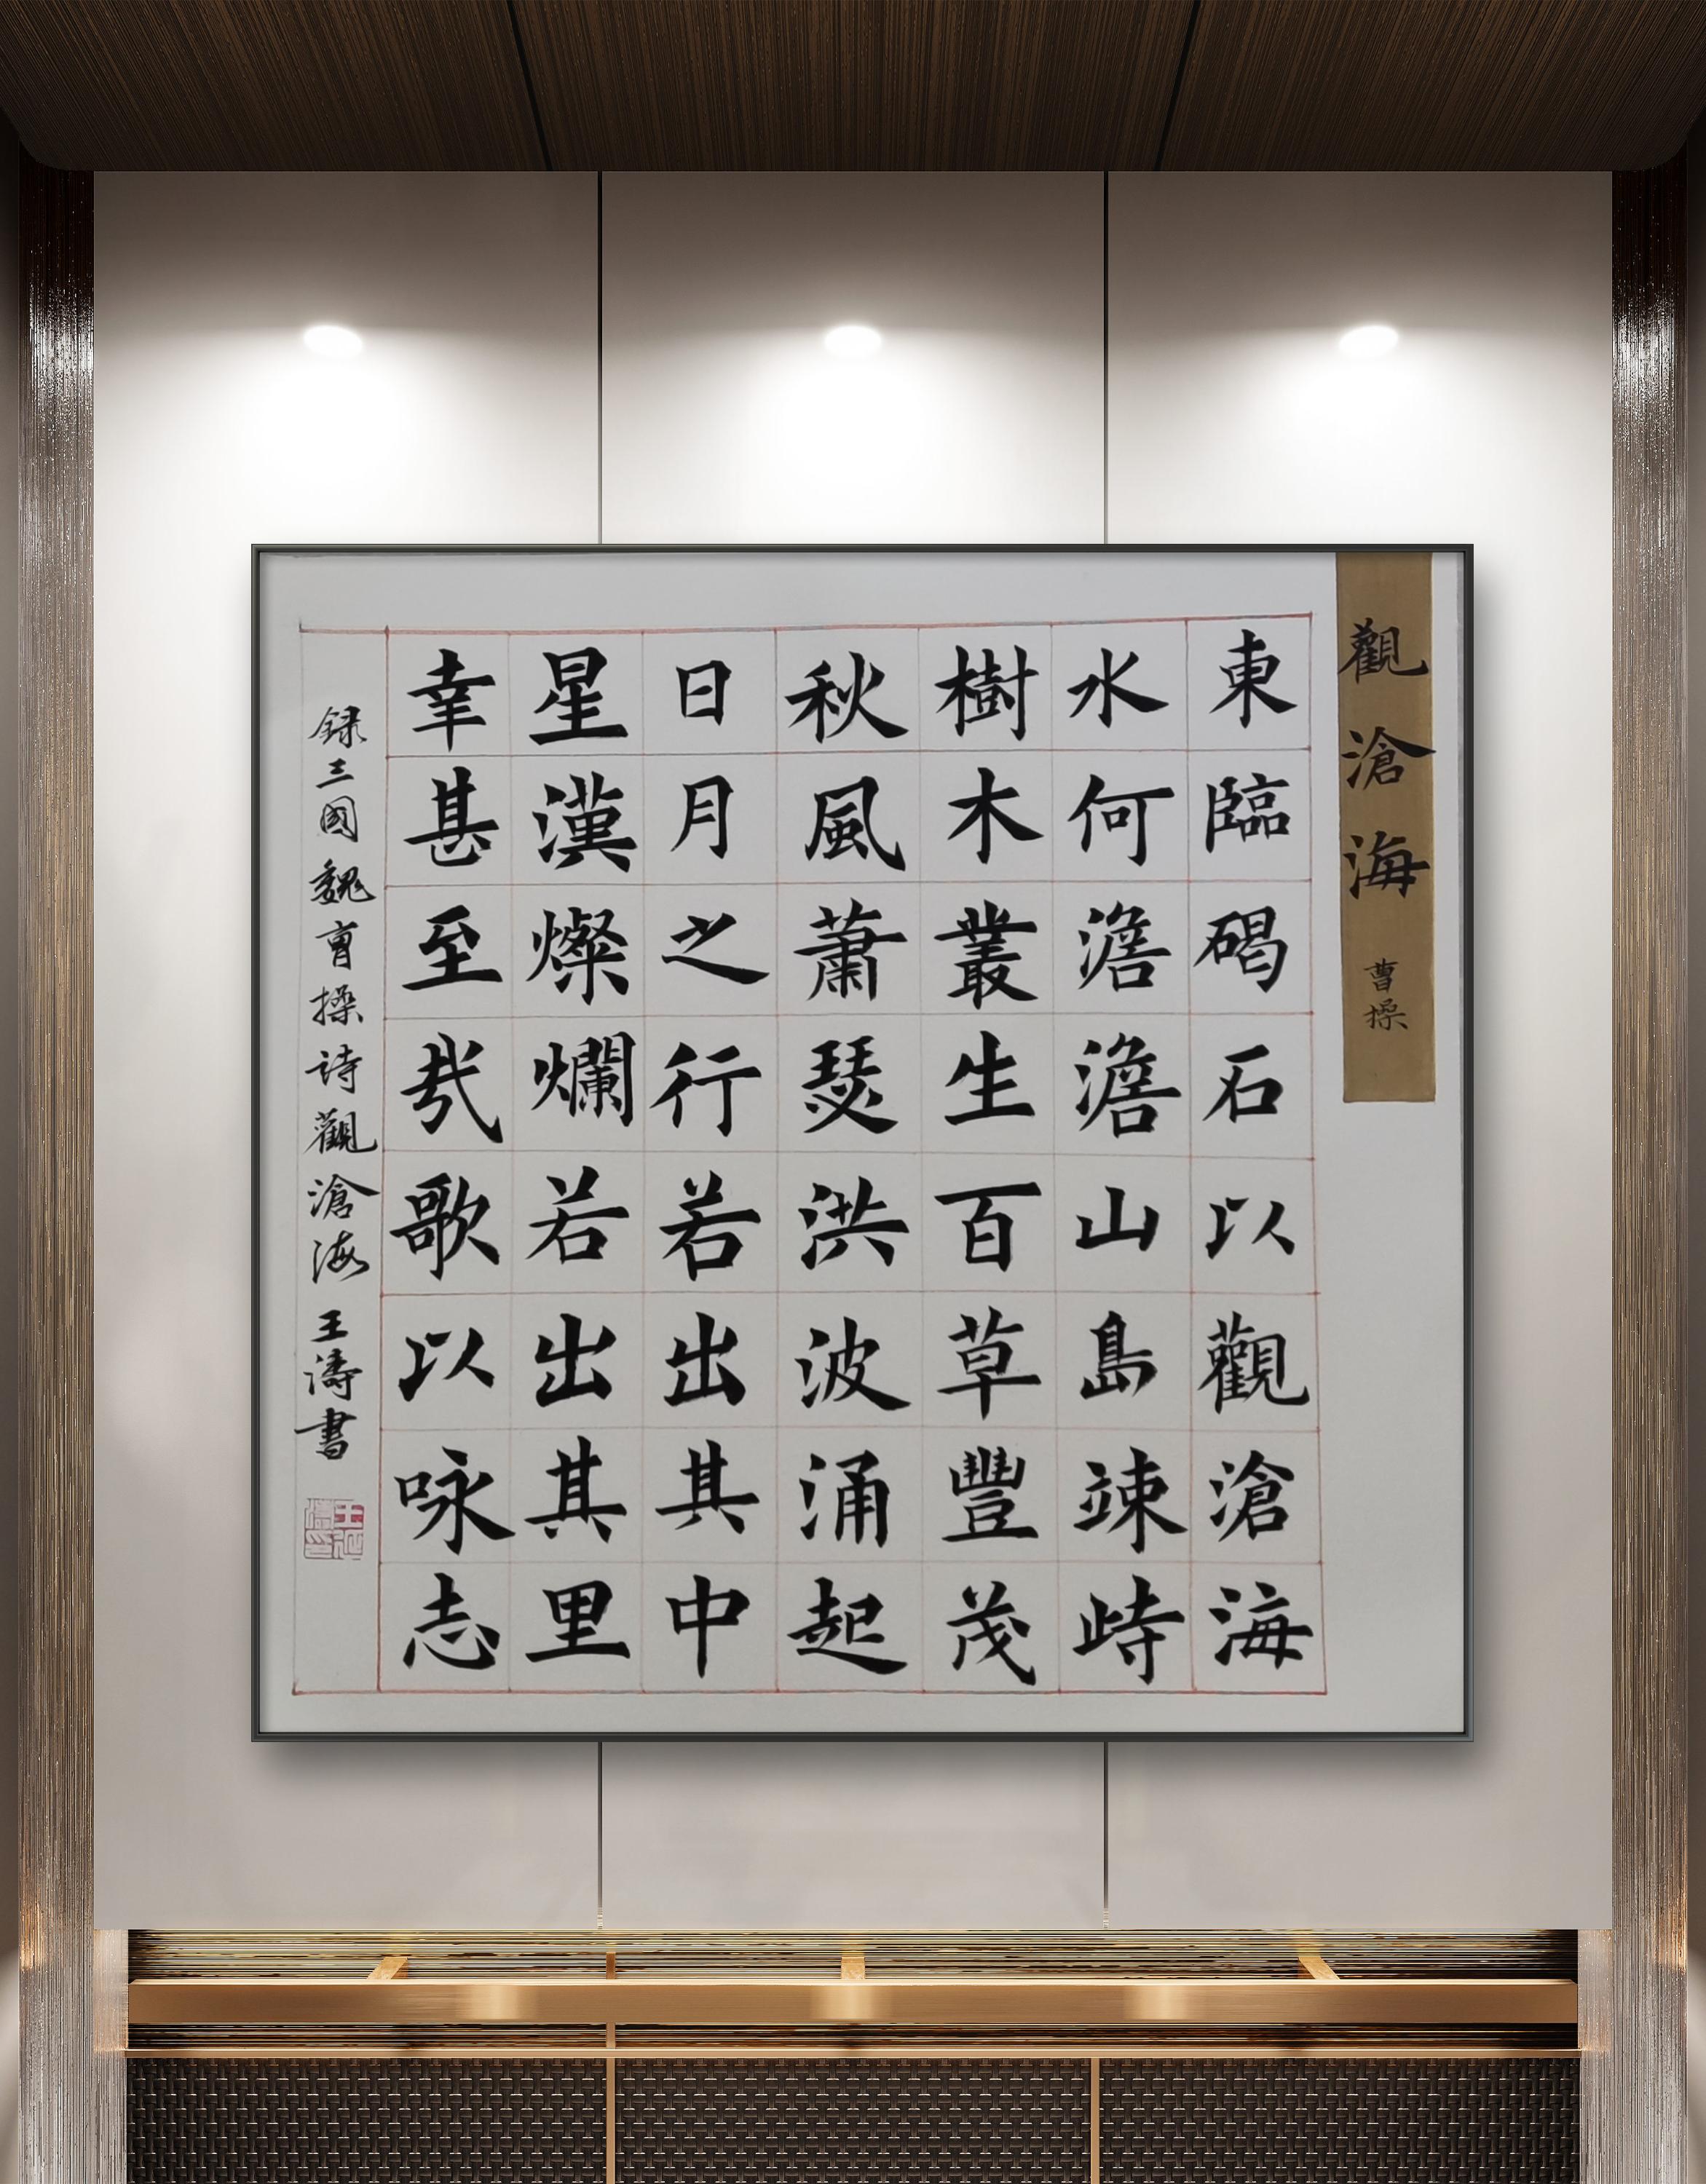 觀滄海
曹操
東臨碣石以觀滄海
水何澹澹山島竦峙
樹木叢生百草豐茂
秋風蕭瑟洪波涌起
日月之行若出其中
星漢燦爛若出其里
幸甚至哉歌以咏志
録三國魏曹操詩觀滄海王濤書